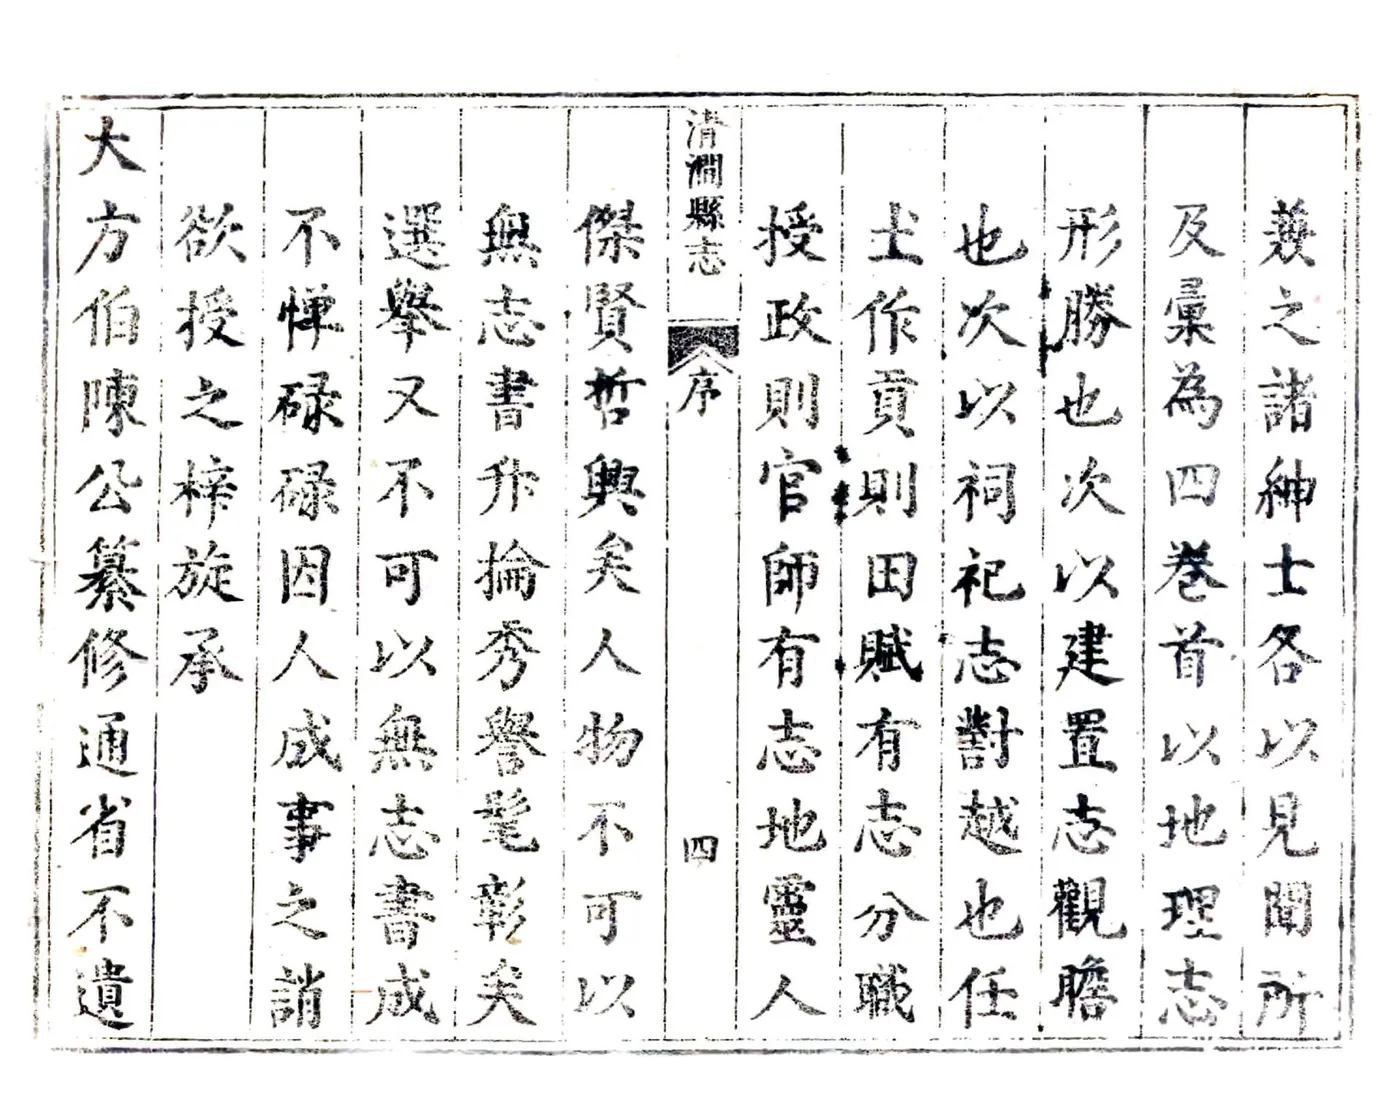 蒹之諸紳士各以見聞所
及彙為四卷首以地理志
形勝也次以建置志觀瞻
也次以祠祀志對越也任
土作貢則田賦有志分職
授政則官師有志地靈人
清澗縣志
序
四
傑賢哲興矣人物不可以
無志書升掄秀譽髦彰矣
選舉又不可以無志書成
不憚碌碌因人成事之誚
欲授之梓旋承
大方伯陳公纂修通省不遺